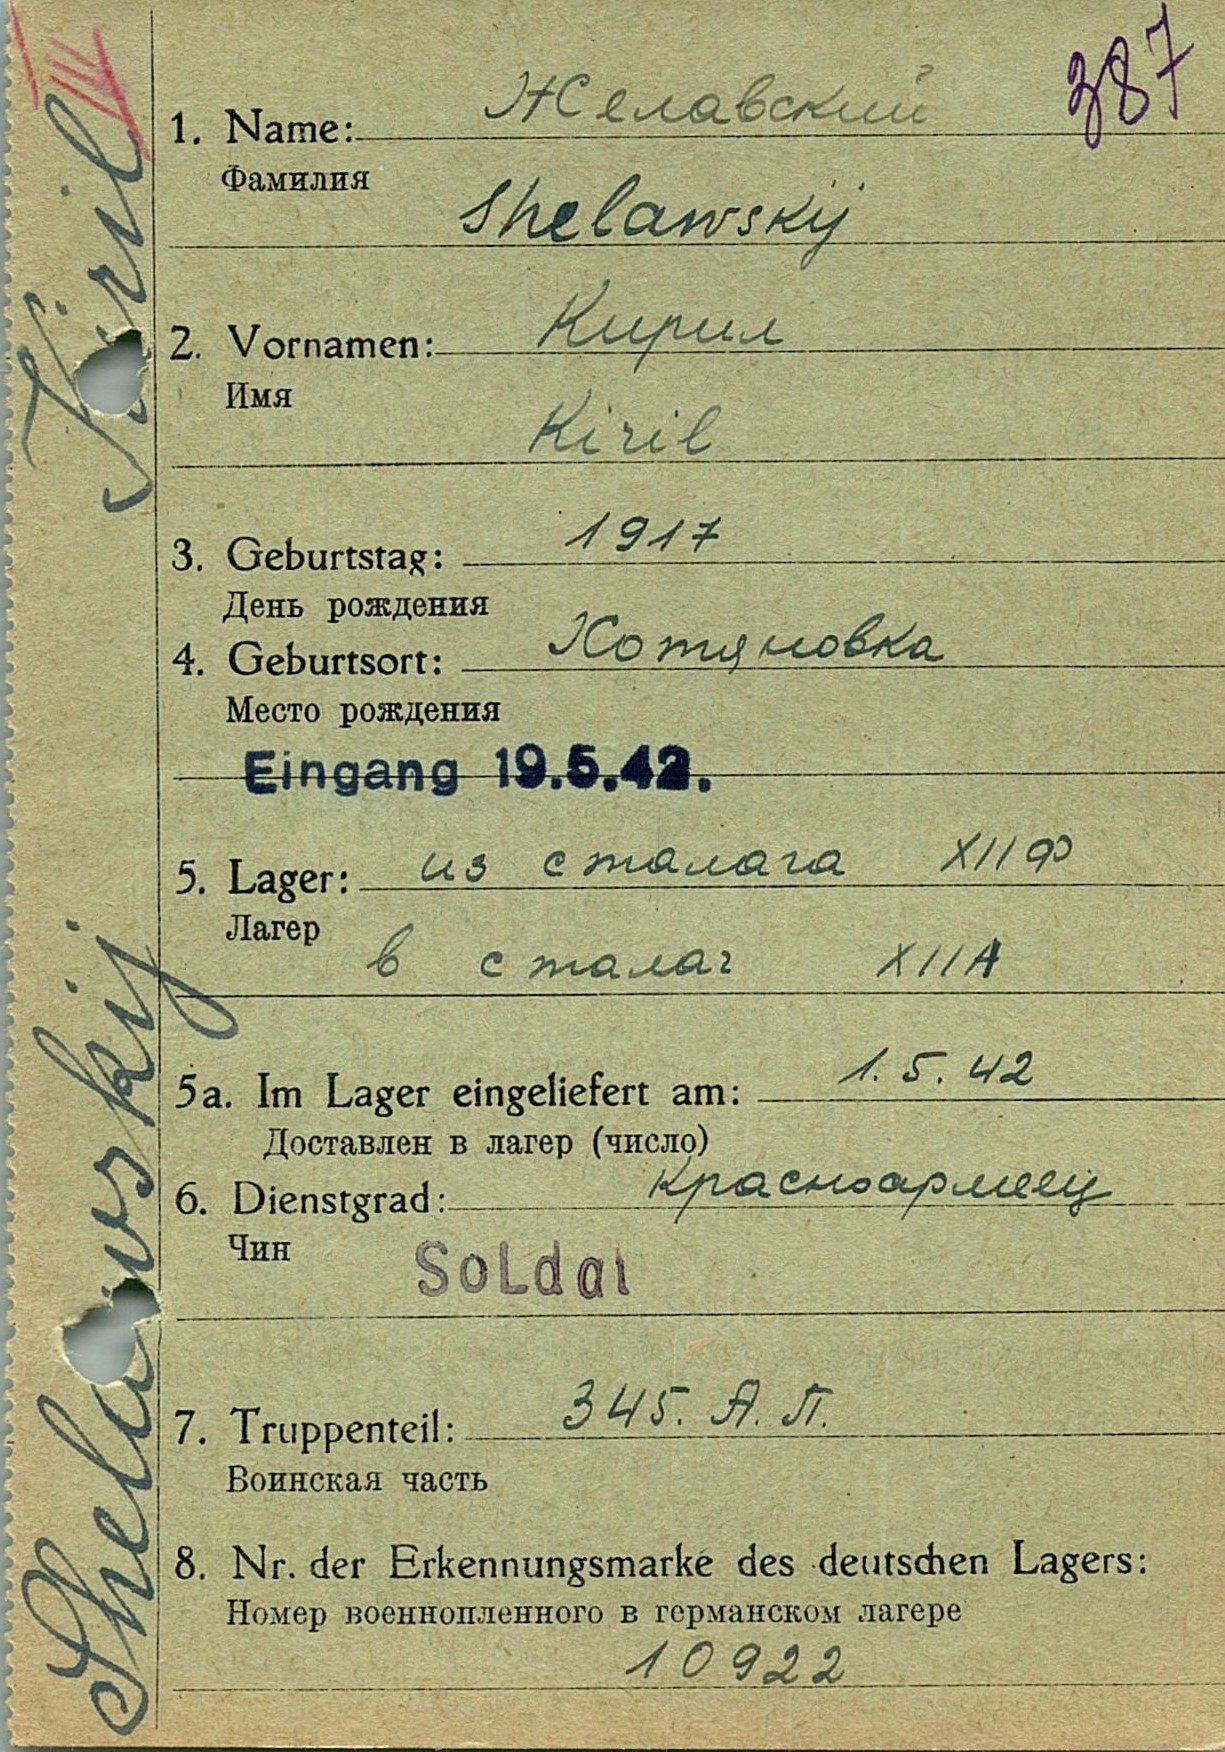 387
1. Name: Желавский
Фамилия
Shelawskij
2. Vornamen: Кирил
Имя
Kiril
3. Geburtstag: 1917
День рождения
4. Geburtsort: Хотяновка
Место рождения
Eingang 19.5.42.
5. Lager: из сталага XII Ф
Лагер
в сталаг XII А
5a. Im Lager eingeliefert am: 1.5.42
Доставлен в лагер (число)
6. Dienstgrad: Красноармеец
Чин
Soldat
7. Truppenteil: 345. А.П.
Воинская часть
8. Nr. der Erkennungsmarke des deutschen Lagers:
Номер военнопленного в германском лагере
10922
Shelawskij Kiril